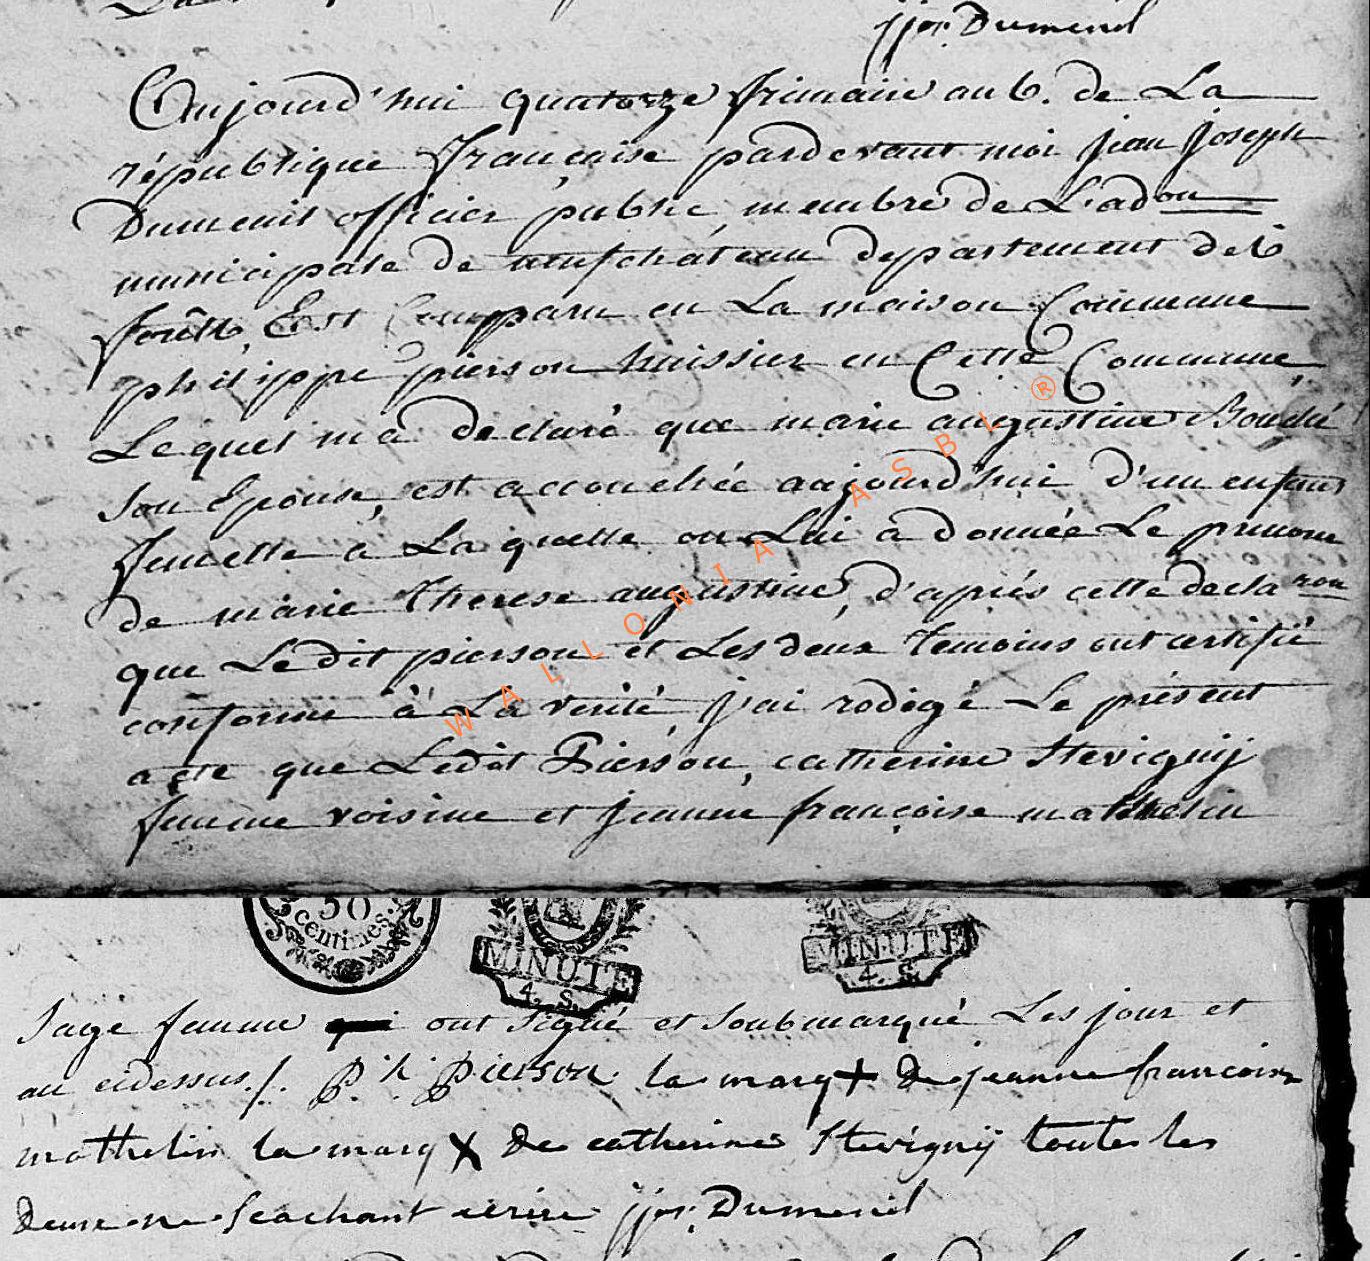 jjos. Dumenil
Aujourd'hui quatorze frimaire an 6. de La
république française pardevant moi jean joseph
Dumenil officier public, membre de L'adon
municipale de neufchâteau departement dels
forêts, Est Comparu en La maison Commune
philippe pierson huissier en Cette Commune,
Lequel m'a declaré que marie augustine
son Epouse, est accouchée aujourd'hui d'un enfant
femelle a La quelle on Lui a donnée Le prenom
de marie therese augustine, d'après cette declaron
que Ledit pierson et Les deux temoins ont certifié
conforme à La verité, j'ai rédigé Le présent
acte que Ledit Pierson, catherine Stevignij
femme voisine et jeanne françoise mathelin
WALLONIA ASBL ®
50
Centimes.
MINUTE
4. S.
MINUTE
4. S.
sage femme qui ont signé et soubmarqué Les jour et
an cidessus ./. Ph. Pierson la marq + de jeanne francoise
mathelin la marq X de catherine Stevignij toutes les
deux ne scachant ecrire jjos. Dumenil